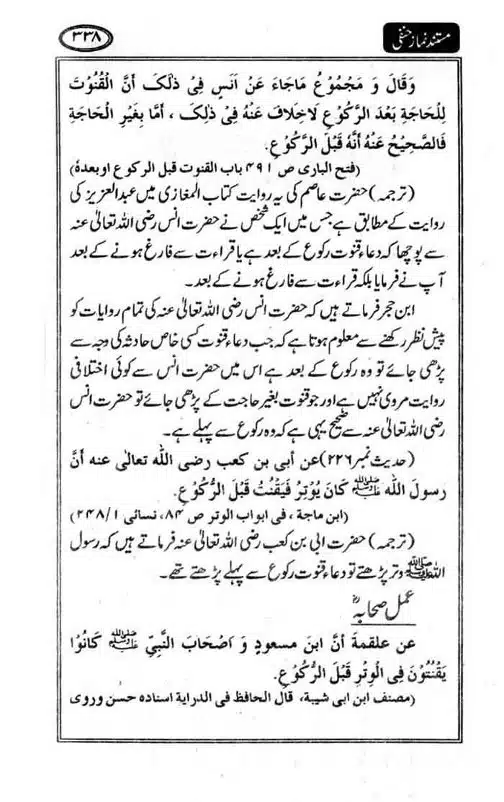 مستند نماز حنفی
۳۳۸
وَقَالَ وَ مَجْمُوْعُ مَاجَاءَ عَنْ اَنَسٍ فِیْ ذٰلِکَ اَنَّ الْقُنُوْتَ
لِلْحَاجَةِ بَعْدَ الرَّکُوْعِ لَاخِلَافَ عَنْهُ فِیْ ذٰلِکَ ، اَمَّا بِغَیْرِ الْحَاجَةِ
فَالصَّحِیْحُ عَنْهُ اَنَّهُ قَبْلَ الرَّکُوْعِ.
(فتح الباری ص ۴۹۱ باب القنوت قبل الرکوع اوبعدہ)
(ترجمہ) حضرت عاصم کی یہ روایت کتاب المغازی میں عبدالعزیز کی
روایت کے مطابق ہے جس میں ایک شخص نے حضرت انس رضی اللہ تعالیٰ عنہ
سے پوچھا کہ دعاء قنوت رکوع کے بعد ہے یا قراءت سے فارغ ہونے کے بعد
آپ نے فرمایا بلکہ قراءت سے فارغ ہونے کے بعد۔
ابن حجر فرماتے ہیں کہ حضرت انس رضی اللہ تعالیٰ عنہ کی تمام روایات کو
پیش نظر رکھنے سے معلوم ہوتا ہے کہ جب دعاء قنوت کسی خاص حادثہ کی وجہ سے
پڑھی جائے تو وہ رکوع کے بعد ہے اس میں حضرت انس سے کوئی اختلافی
روایت مروی نہیں ہے اور جو قنوت بغیر حاجت کے پڑھی جائے تو حضرت انس
رضی اللہ تعالیٰ عنہ سے صحیح یہی ہے کہ وہ رکوع سے پہلے ہے۔
(حدیث نمبر ۲۲۶) عن أبی بن کعب رضی اللہ تعالی عنه أنَّ
رسولَ اللہ ﷺ کَانَ یُوْتِرُ فَیَقْنُتُ قَبْلَ الرُّکُوْعِ.
(ابن ماجة، فی ابواب الوتر ص ۸۴، نسائی ۲۴۸/۱)
(ترجمہ) حضرت ابی بن کعب رضی اللہ تعالیٰ عنہ فرماتے ہیں کہ رسول
اللہ ﷺ وتر پڑھتے تو دعاء قنوت رکوع سے پہلے پڑھتے تھے۔
عمل صحابہؓ
عن علقمة أنَّ ابنَ مسعودٍ وَ اَصْحَابَ النَّبِیِّ ﷺ کَانُوْا
یَقْنُتُوْنَ فِی الْوِتْرِ قَبْلَ الرُّکُوْعِ.
(مصنف ابن ابی شیبة، قال الحافظ فی الدرایة اسناده حسن وروی